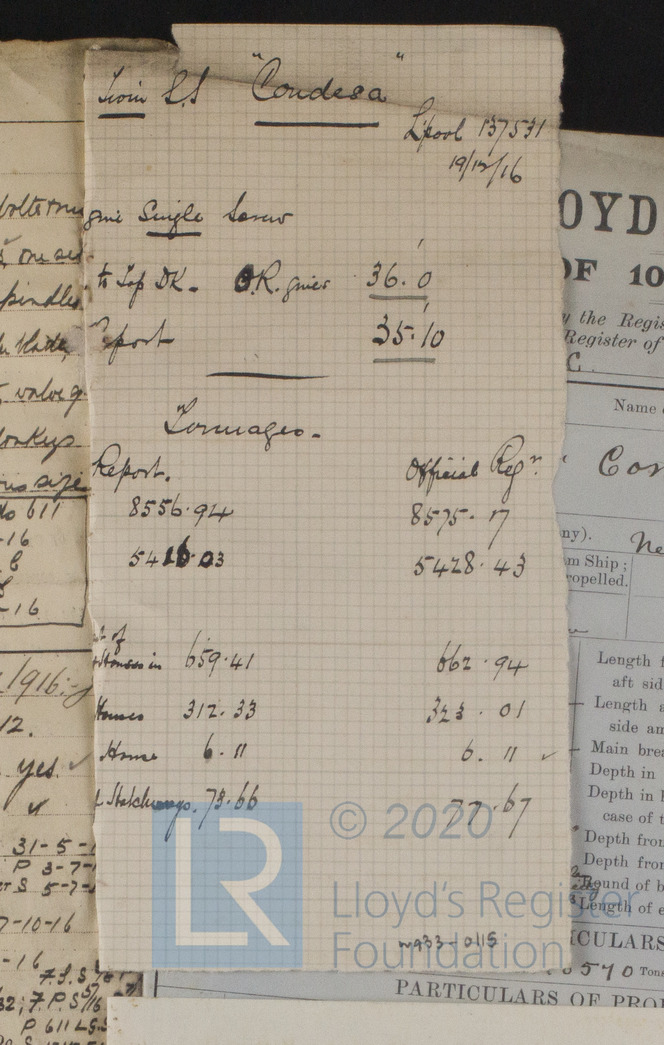 S.S "Condesa"
L'pool 137531
19/12/16
Single Screw
to Top DK. O.R. gives 36.0
Report 35.10
Tonnages.
Report. Official Regr.
8556.94 8575.17
5416.03 5428.43
of
Houses in 659.41 662.94
Houses 312.33 323.01
House 6.11 6.11 ✓
Hatchways. 73.66 77.67
© 2020
Lloyd's Register
Foundation
W933-0115
LR
spindles
valve
donkeys
size
611
-16
-16
1916:-
12.
yes. ✓
✓
31-5-1
P 3-7-1
S 5-7-
7-10-16
-16
7.S.S
P 611 LS.S
OYD
OF 10
y the Regis
Register of
C.
Name
Con
ny).
am Ship;
ropelled.
Ne
Length f
aft sid
Length a
side am
Main brea
Depth in
Depth in
case of t
Depth from
Depth from
Round of b
Length of e
ICULARS
8570 Tons
PARTICULARS OF PROP